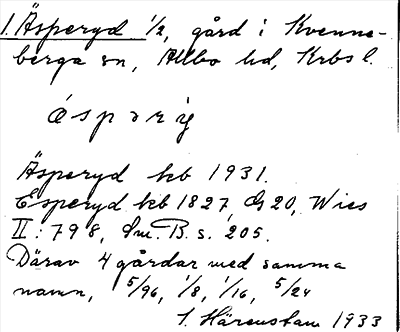 1. Äsperyd 1/2, gård i Kvenne-
berga sn, Allbo hd, Krbs l.
ásparíg
Äsperyd kb 1931.
Esperyd kb 1827, G 20, Wies
II: 798, Sm. B. s. 205.
Därav 4 gårdar med samma
namn, 5/96, 1/8, 1/16, 5/24
S. Härenstam 1933